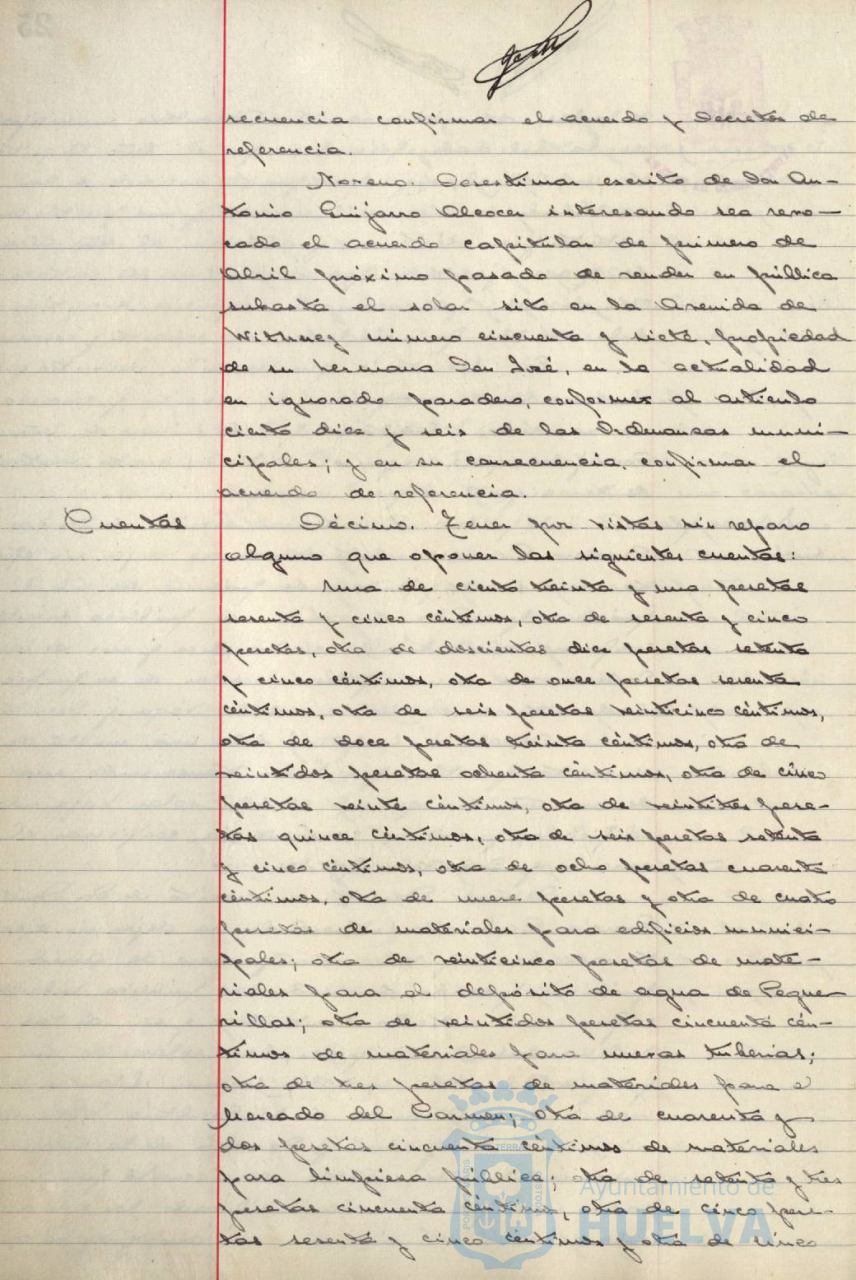 secuencia confirmar el acuerdo y Decretos de
referencia.
Noveno. Desestimar escrito de Don An-
tonio Guijarro Alcocer interesando sea revo-
cado el acuerdo capitular de primero de
Abril próximo pasado de vender en pública
subasta el solar sito en la Avenida de
número cincuenta y siete, propiedad
de su hermano Don José, en la actualidad
en ignorado paradero, conforme al artículo
ciento diez y seis de las Ordenanzas muni-
cipales; y en su consecuencia, confirmar el
acuerdo de referencia.
Cuentas
Décimo. Tener por vistas sin reparo
alguno que oponer las siguientes cuentas:
Una de ciento treinta y una pesetas
sesenta y cinco céntimos, otra de sesenta y cinco
pesetas, otra de doscientas diez pesetas setenta
y cinco céntimos, otra de once pesetas sesenta
céntimos, otra de seis pesetas veinticinco céntimos,
otra de doce pesetas treinta céntimos, otra de
veintidos pesetas ochenta céntimos, otra de cinco
pesetas veinte céntimos, otra de veintitres pese-
tas quince céntimos, otra de seis pesetas setenta
y cinco céntimos, otra de ocho pesetas cuarenta
céntimos, otra de nueve pesetas y otra de cuatro
pesetas de materiales para edificios munici-
pales; otra de veinticinco pesetas de mate-
riales para el depósito de agua de Pegue-
rillas; otra de veintidos pesetas cincuenta cén-
timos de materiales para nuevas tuberias;
otra de tres pesetas de materiales para el
Mercado del Carmen; otra de cuarenta y
dos pesetas cincuenta céntimos de materiales
para limpieza pública; otra de setenta y tres
pesetas cincuenta céntimos, otra de cinco pese-
tas sesenta y cinco céntimos y otra de cinco
Ayuntamiento de
HUELVA